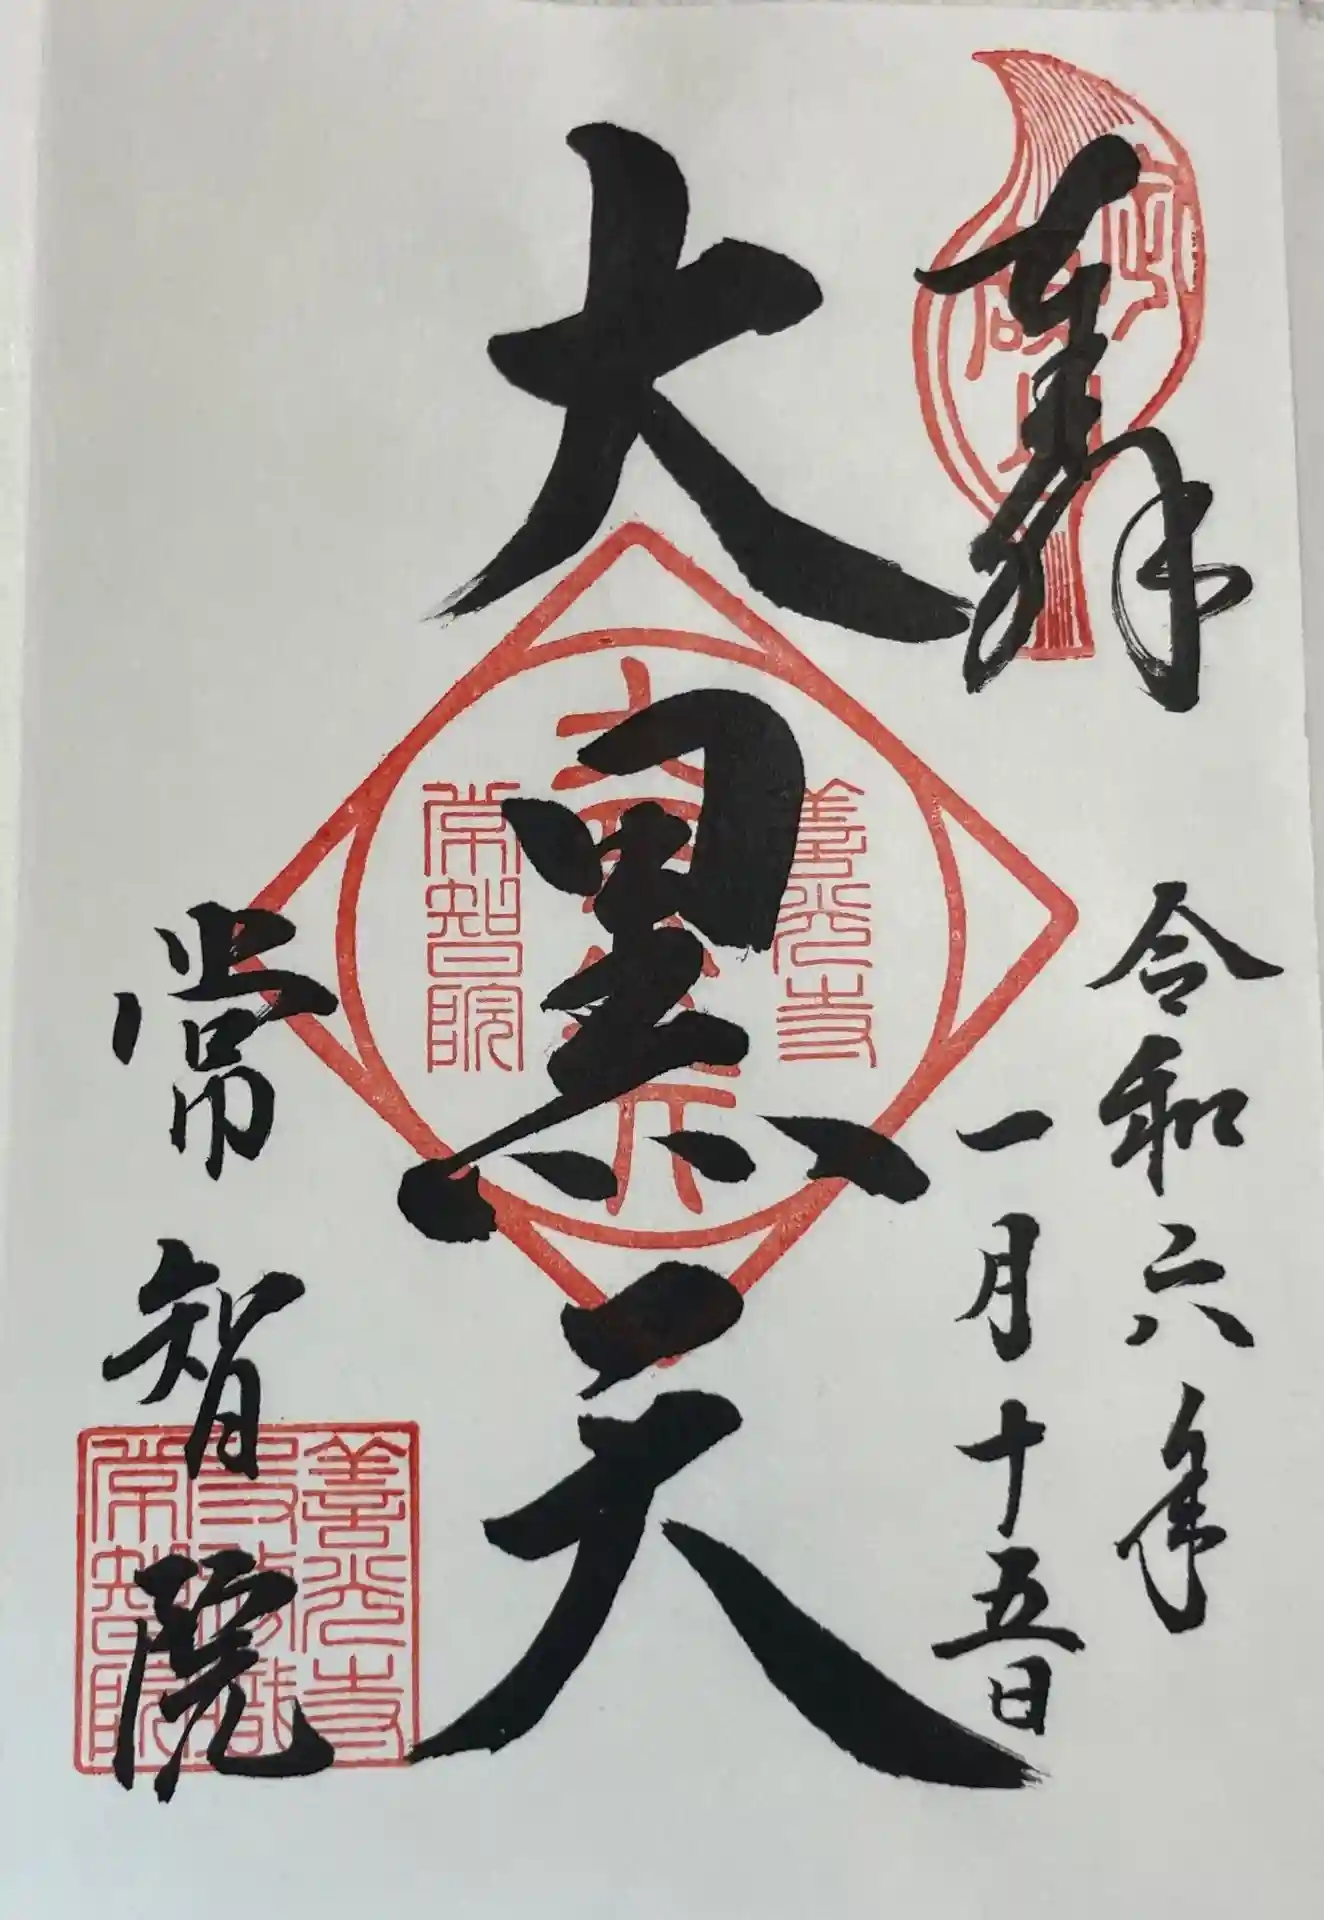 奉拝
令和六年
一月十五日
大黒天
常智院
善光寺
常智院
善光寺
常智院